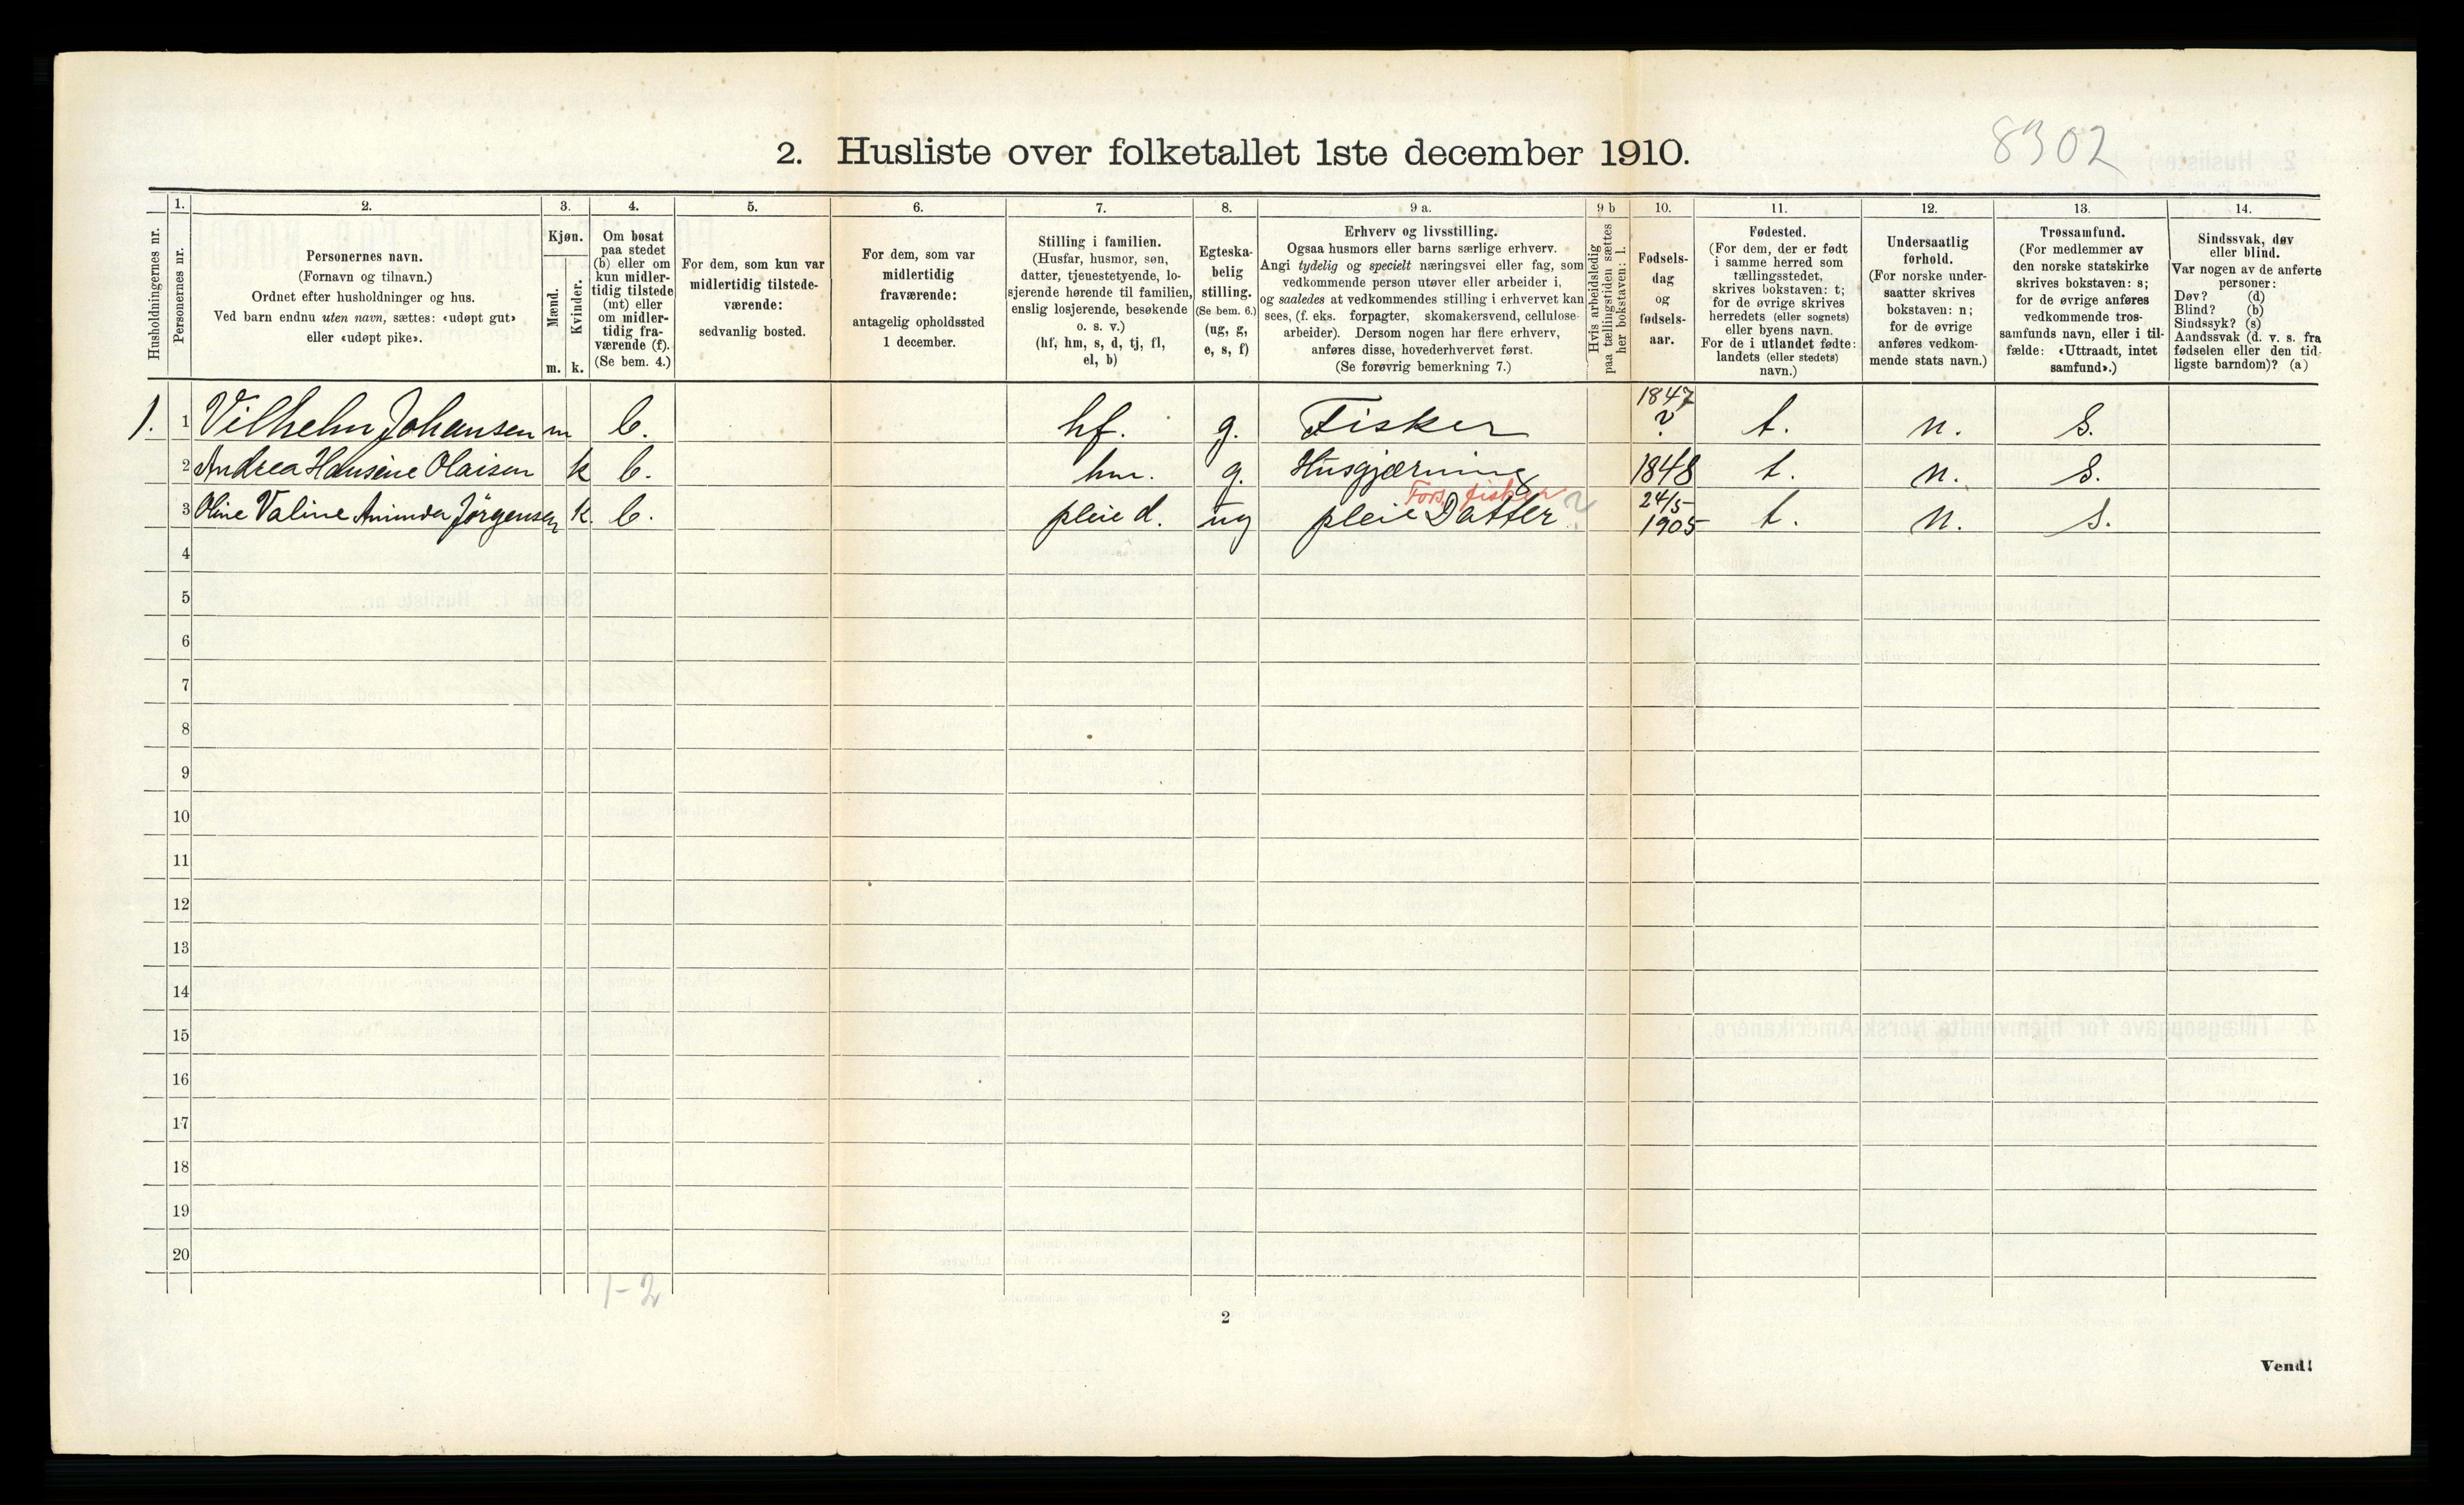 8302
2. Husliste over folketallet 1ste december 1910.
Husholdningernes nr.
1.
Personernes nr.
2.
Personernes navn.
(Fornavn og tilnavn.)
Ordnet efter husholdninger og hus.
Ved barn endnu uten navn, sættes: «udøpt gut»
eller «udøpt pike».
3.
Kjøn.
Mænd.
Kvinder.
m. k.
4.
Om bosat
paa stedet
(b) eller om
kun midler-
tidig tilstede
(mt) eller
om midler-
tidig fra-
værende (f).
(Se bem. 4.)
5.
For dem, som kun var
midlertidig tilstede-
værende:
sedvanlig bosted.
6.
For dem, som var
midlertidig
fraværende:
antagelig opholdssted
1 december.
7.
Stilling i familien.
(Husfar, husmor, søn,
datter, tjenestetyende, lo-
sjerende hørende til familien,
enslig losjerende, besøkende
o. s. v.)
(hf, hm, s, d, tj, fl,
el, b)
8.
Egteska-
belig
stilling.
(Se bem. 6.)
(ug, g,
e, s, f)
9 a.
Erhverv og livsstilling.
Ogsaa husmors eller barns særlige erhverv.
Angi tydelig og specielt næringsvei eller fag, som
vedkommende person utøver eller arbeider i,
og saaledes at vedkommendes stilling i erhvervet kan
sees, (f. eks. forpagter, skomakersvend, cellulose-
arbeider). Dersom nogen har flere erhverv,
anføres disse, hovederhvervet først.
(Se forøvrig bemerkning 7.)
9 b
Hvis arbeidsledig
paa tællingstiden sættes
her bokstaven: l.
10.
Fødsels-
dag
og
fødsels-
aar.
11.
Fødested.
(For dem, der er født
i samme herred som
tællingsstedet,
skrives bokstaven: t;
for de øvrige skrives
herredets (eller sognets)
eller byens navn.
For de i utlandet fødte:
landets (eller stedets)
navn.)
12.
Undersaatlig
forhold.
(For norske under-
saatter skrives
bokstaven: n;
for de øvrige
anføres vedkom-
mende stats navn.)
13.
Trossamfund.
(For medlemmer av
den norske statskirke
skrives bokstaven: s;
for de øvrige anføres
vedkommende tros-
samfunds navn, eller i til-
fælde: «Uttraadt, intet
samfund».)
14.
Sindssvak, døv
eller blind.
Var nogen av de anførte
personer:
Døv? (d)
Blind? (b)
Sindssyk? (s)
Aandssvak (d. v. s. fra
fødselen eller den tid-
ligste barndom)? (a)
1. 1 Vilhelm Johansen m b. hf. g. Fisker 1847 ? t. n. S.
2 Andrea Hansine Olaisen k b. hm. g. Husgjærning 1848 t. n. S.
Fors. fisker
3 Oline Valine Aminda Jörgensen k. b. pleie d. ug pleie Datter ? 24/5- 1905 t. n. S.
4
5
6
7
8
9
10
11
12
13
14
15
16
17
18
19
20
1-2
2
Vend!